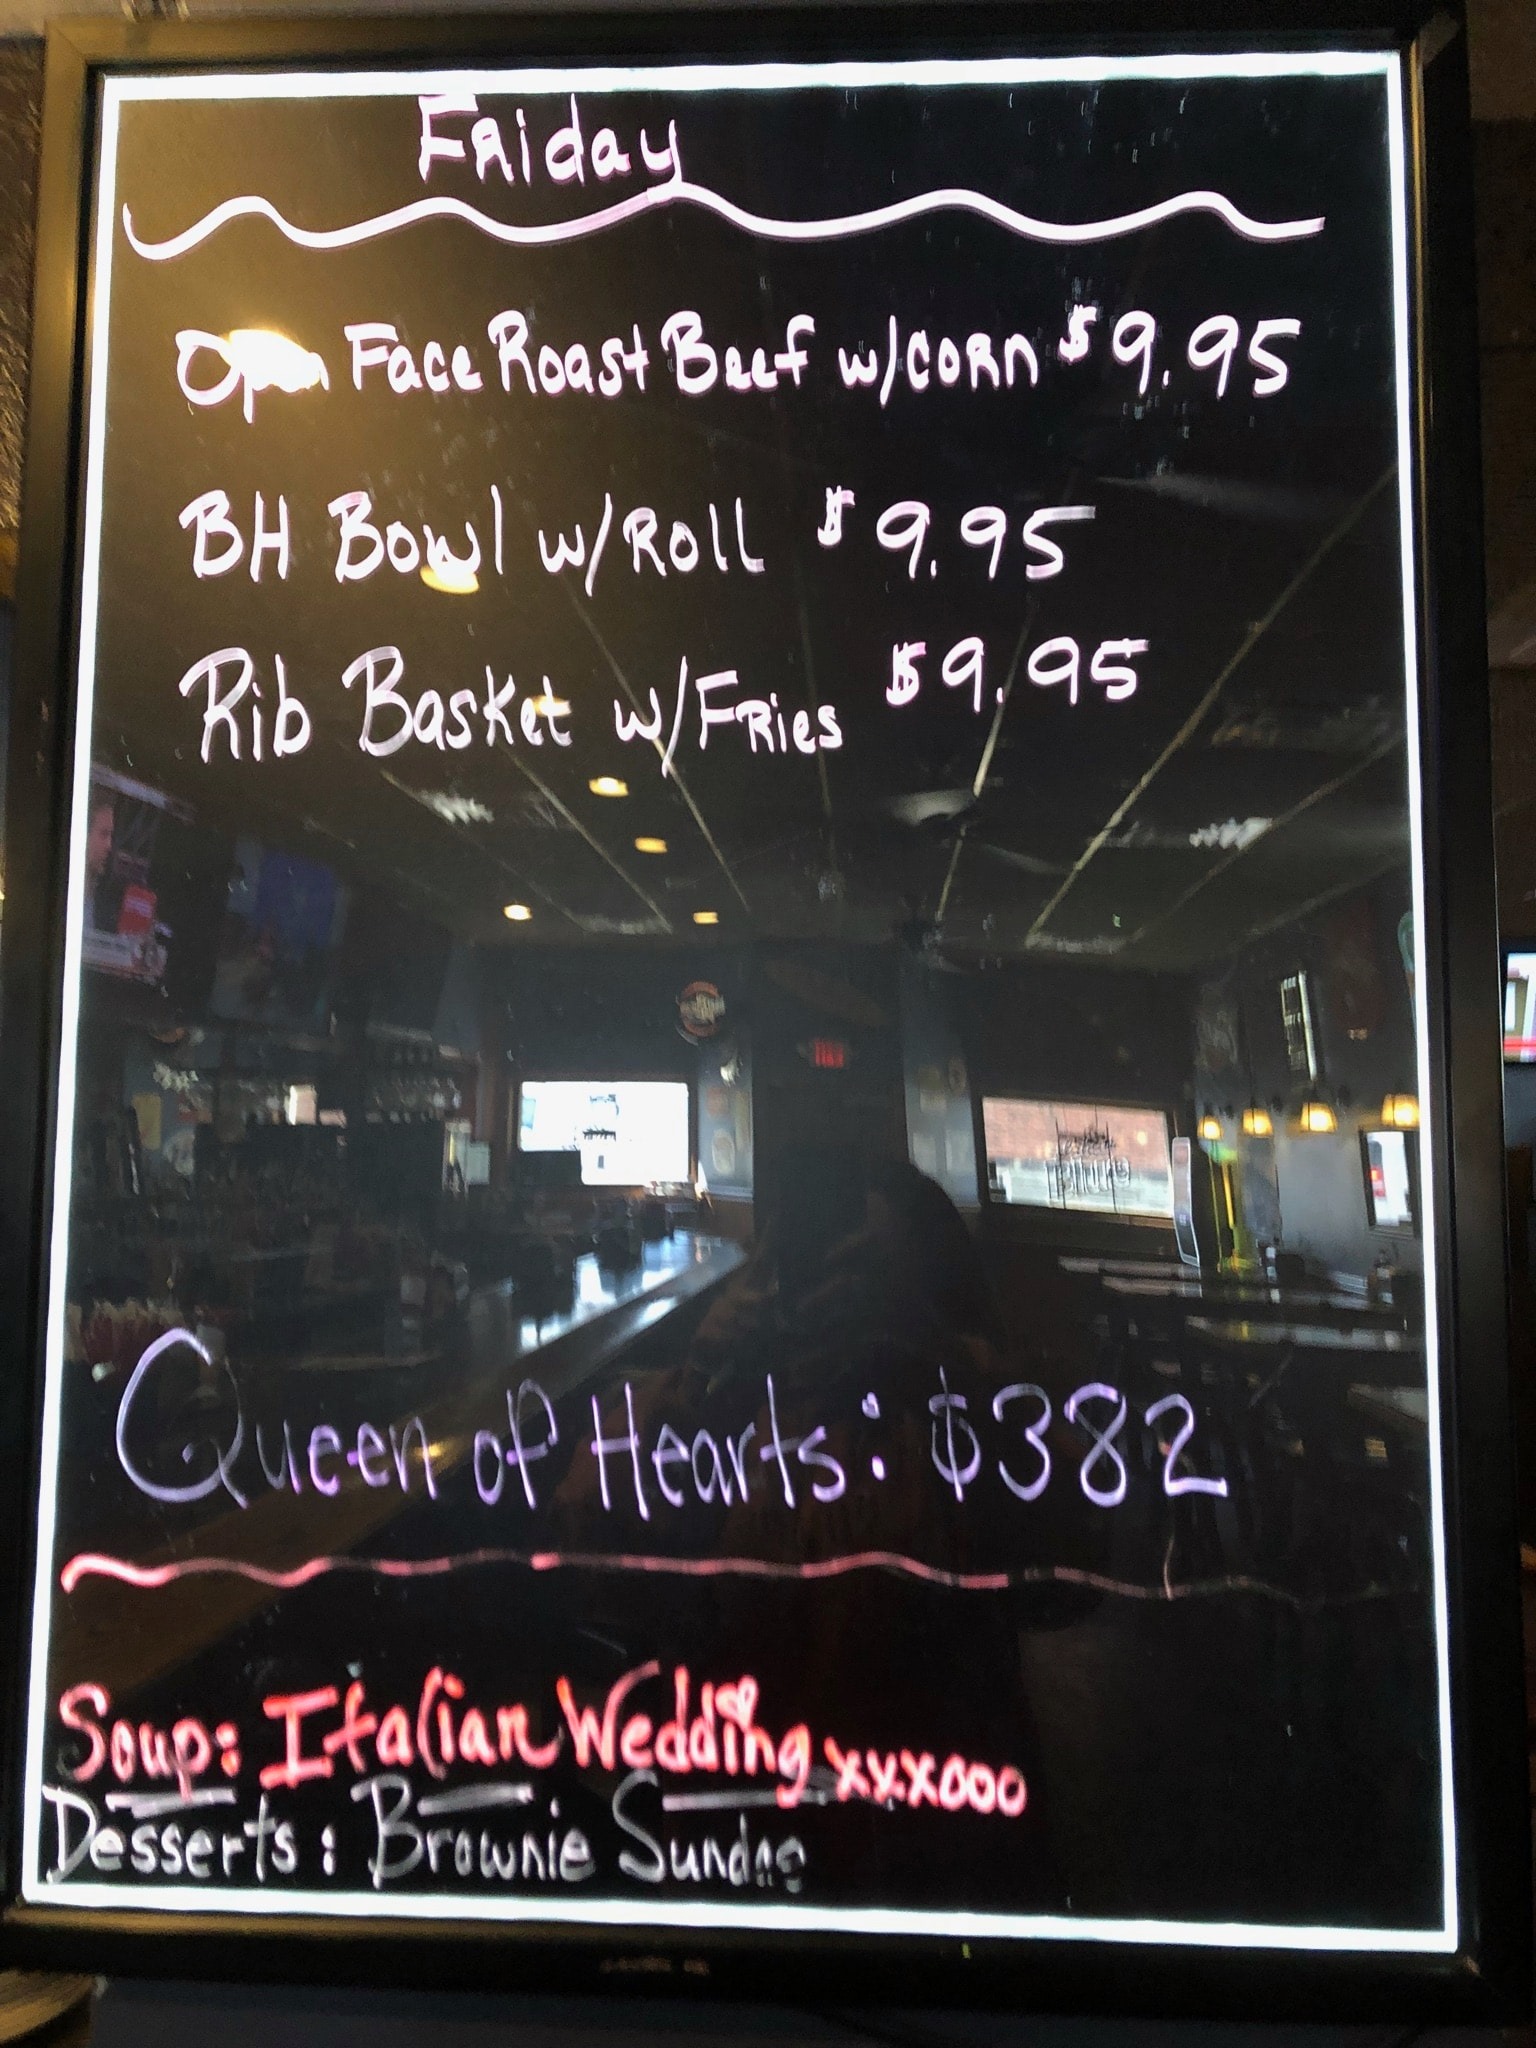 Friday
Open Face Roast Beef w/corn $9.95
BH Bowl w/Roll $9.95
Rib Basket w/Fries $9.95
Queen of Hearts: $382
Soup: Italian Wedding xxxooo
Desserts: Brownie Sundae